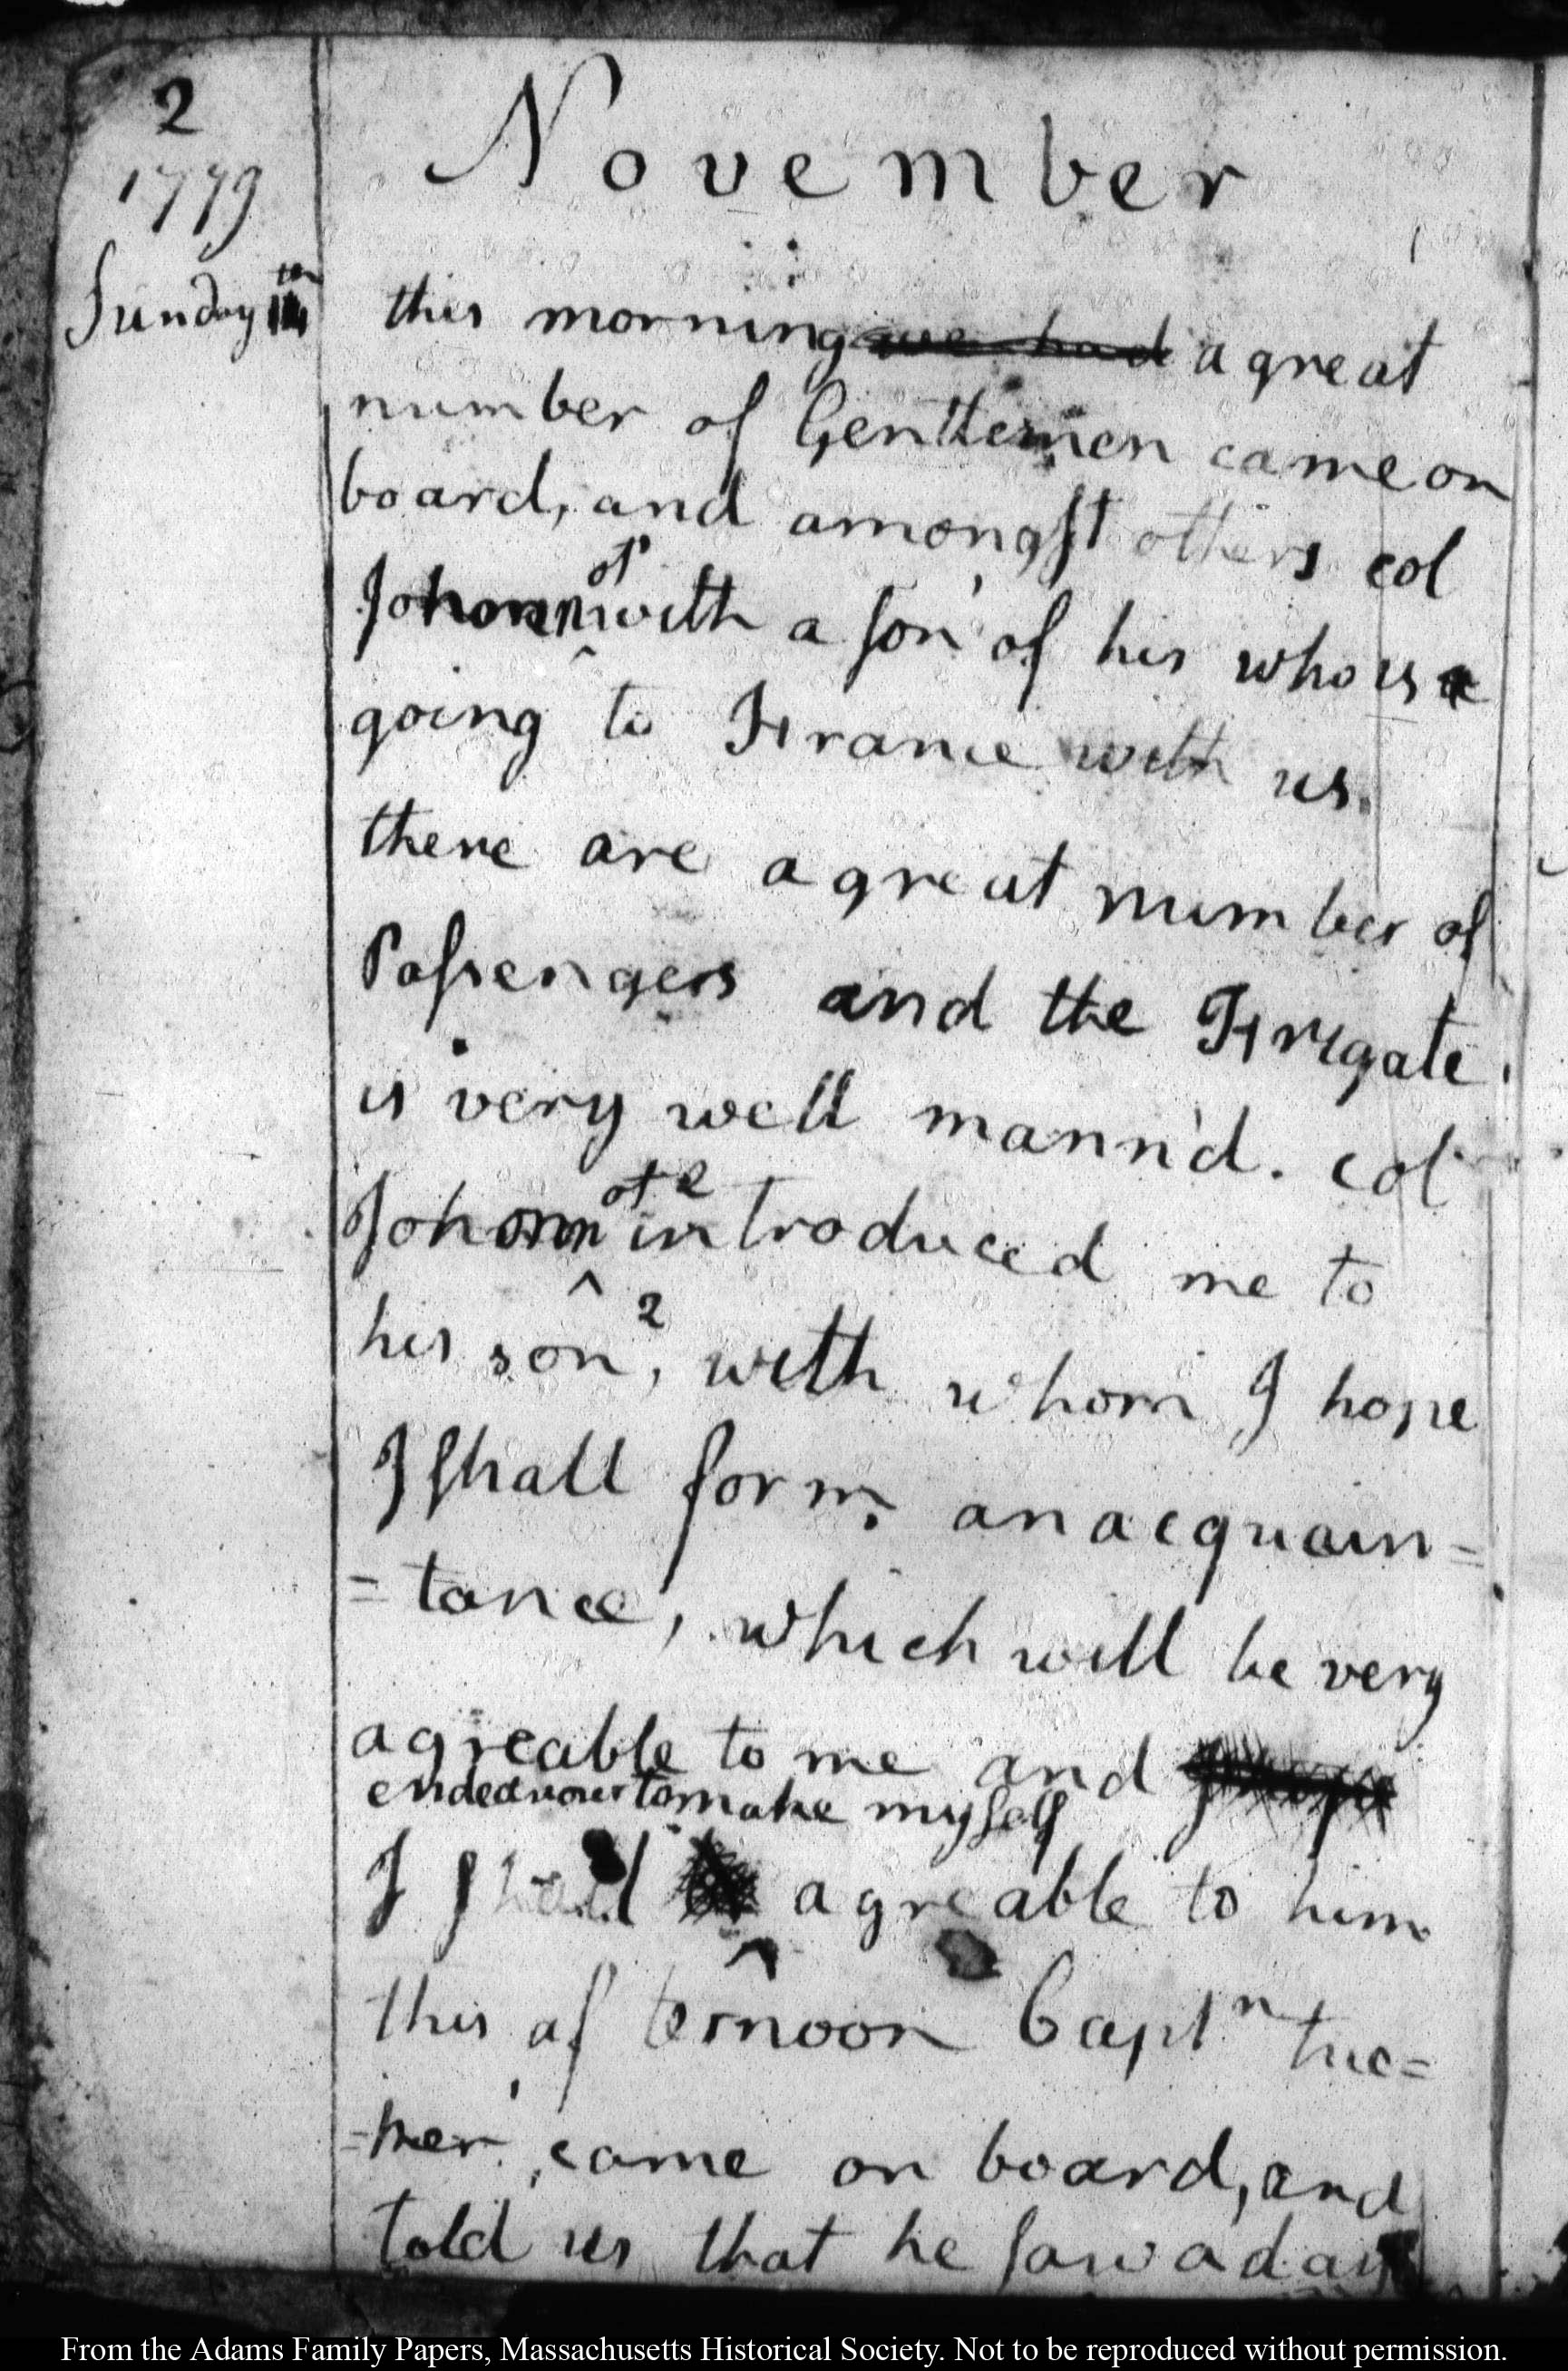 2
1779
November
Sunday 14
this morning we had a great
number of Gentlemen came on
board, and amongst others col
Johonnot with a son of his who is
going to France with us.
there are a great number of
Passengers and the Frigate
is very well mann'd. col
Johonnot 2 introduced me to
his son 2, with whom I hope
I shall form an acquain=
=tance, which will be very
agreable to me and I hope
endeavour to make myself
I shall be agreable to him
this afternoon Captn tuc=
=ker, came on board, and
told us that he saw a day
From the Adams Family Papers, Massachusetts Historical Society. Not to be reproduced without permission.